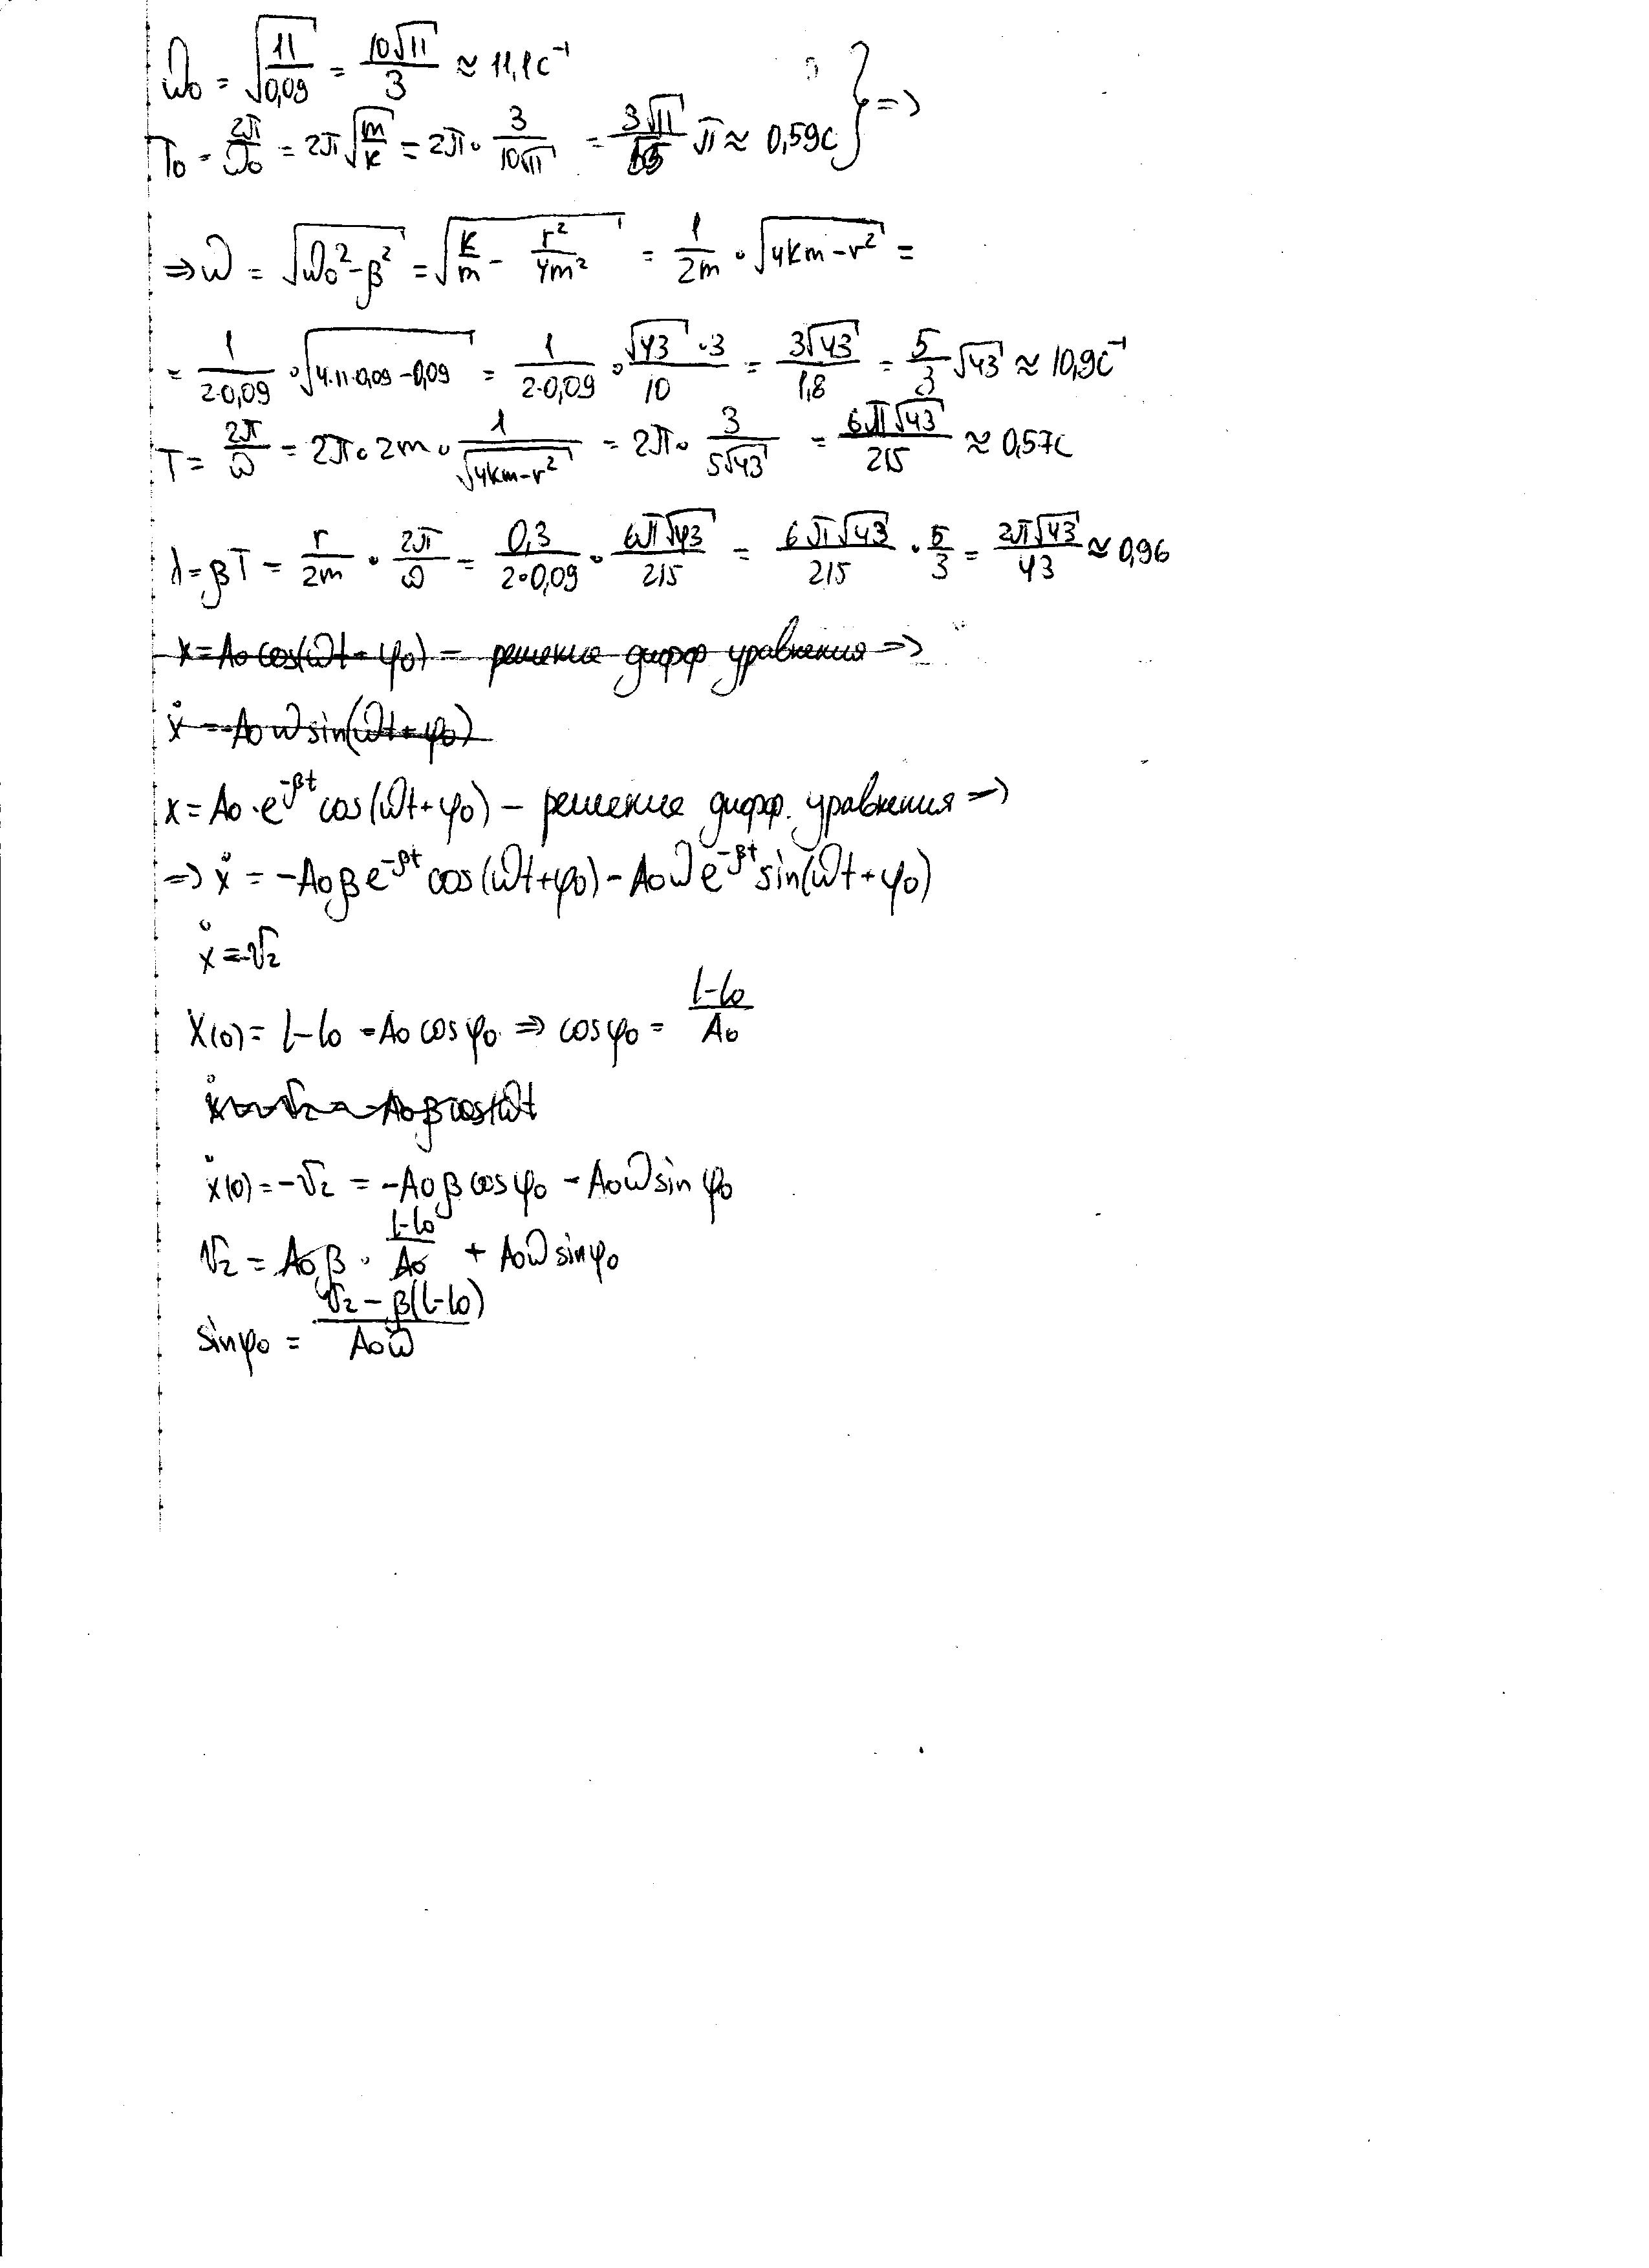 ω₀ = √(11/0,09) = 10√11/3 ≈ 11,1c⁻¹
T₀ = 2π/ω₀ = 2π√(m/k) = 2π · 3/(10√11) = 3√11/55 π ≈ 0,59c } =>
=> ω = √(ω₀² - β²) = √(k/m - r²/4m²) = 1/2m · √(4km - r²) =
= 1/(2·0,09) · √(4·11·0,09 - 0,09) = 1/(2·0,09) · √43·3/10 = 3√43/1,8 = 5/3 √43 ≈ 10,9c⁻¹
T = 2π/ω = 2π · 2m · 1/√(4km - r²) = 2π · 3/(5√43) = 6π√43/215 ≈ 0,57c
λ = βT = r/2m · 2π/ω = 0,3/(2·0,09) · 6π√43/215 = 6π√43/215 · 5/3 = 2π√43/43 ≈ 0,96
x = A₀ cos(ωt + φ₀) — решение дифф уравнения =>
ẋ = -A₀ω sin(ωt + φ₀)
x = A₀ · e^(-βt) cos(ωt + φ₀) — решение дифф. уравнения =>
=> ẋ = -A₀βe^(-βt) cos(ωt + φ₀) - A₀ωe^(-βt) sin(ωt + φ₀)
ẋ = -v₂
x(0) = l - l₀ = A₀ cos φ₀ => cos φ₀ = (l - l₀)/A₀
ẋ = -v₂ = -A₀β cos ωt
ẋ(0) = -v₂ = -A₀β cos φ₀ - A₀ω sin φ₀
v₂ = A₀β · (l - l₀)/A₀ + A₀ω sin φ₀
sin φ₀ = (v₂ - β(l - l₀))/A₀ω